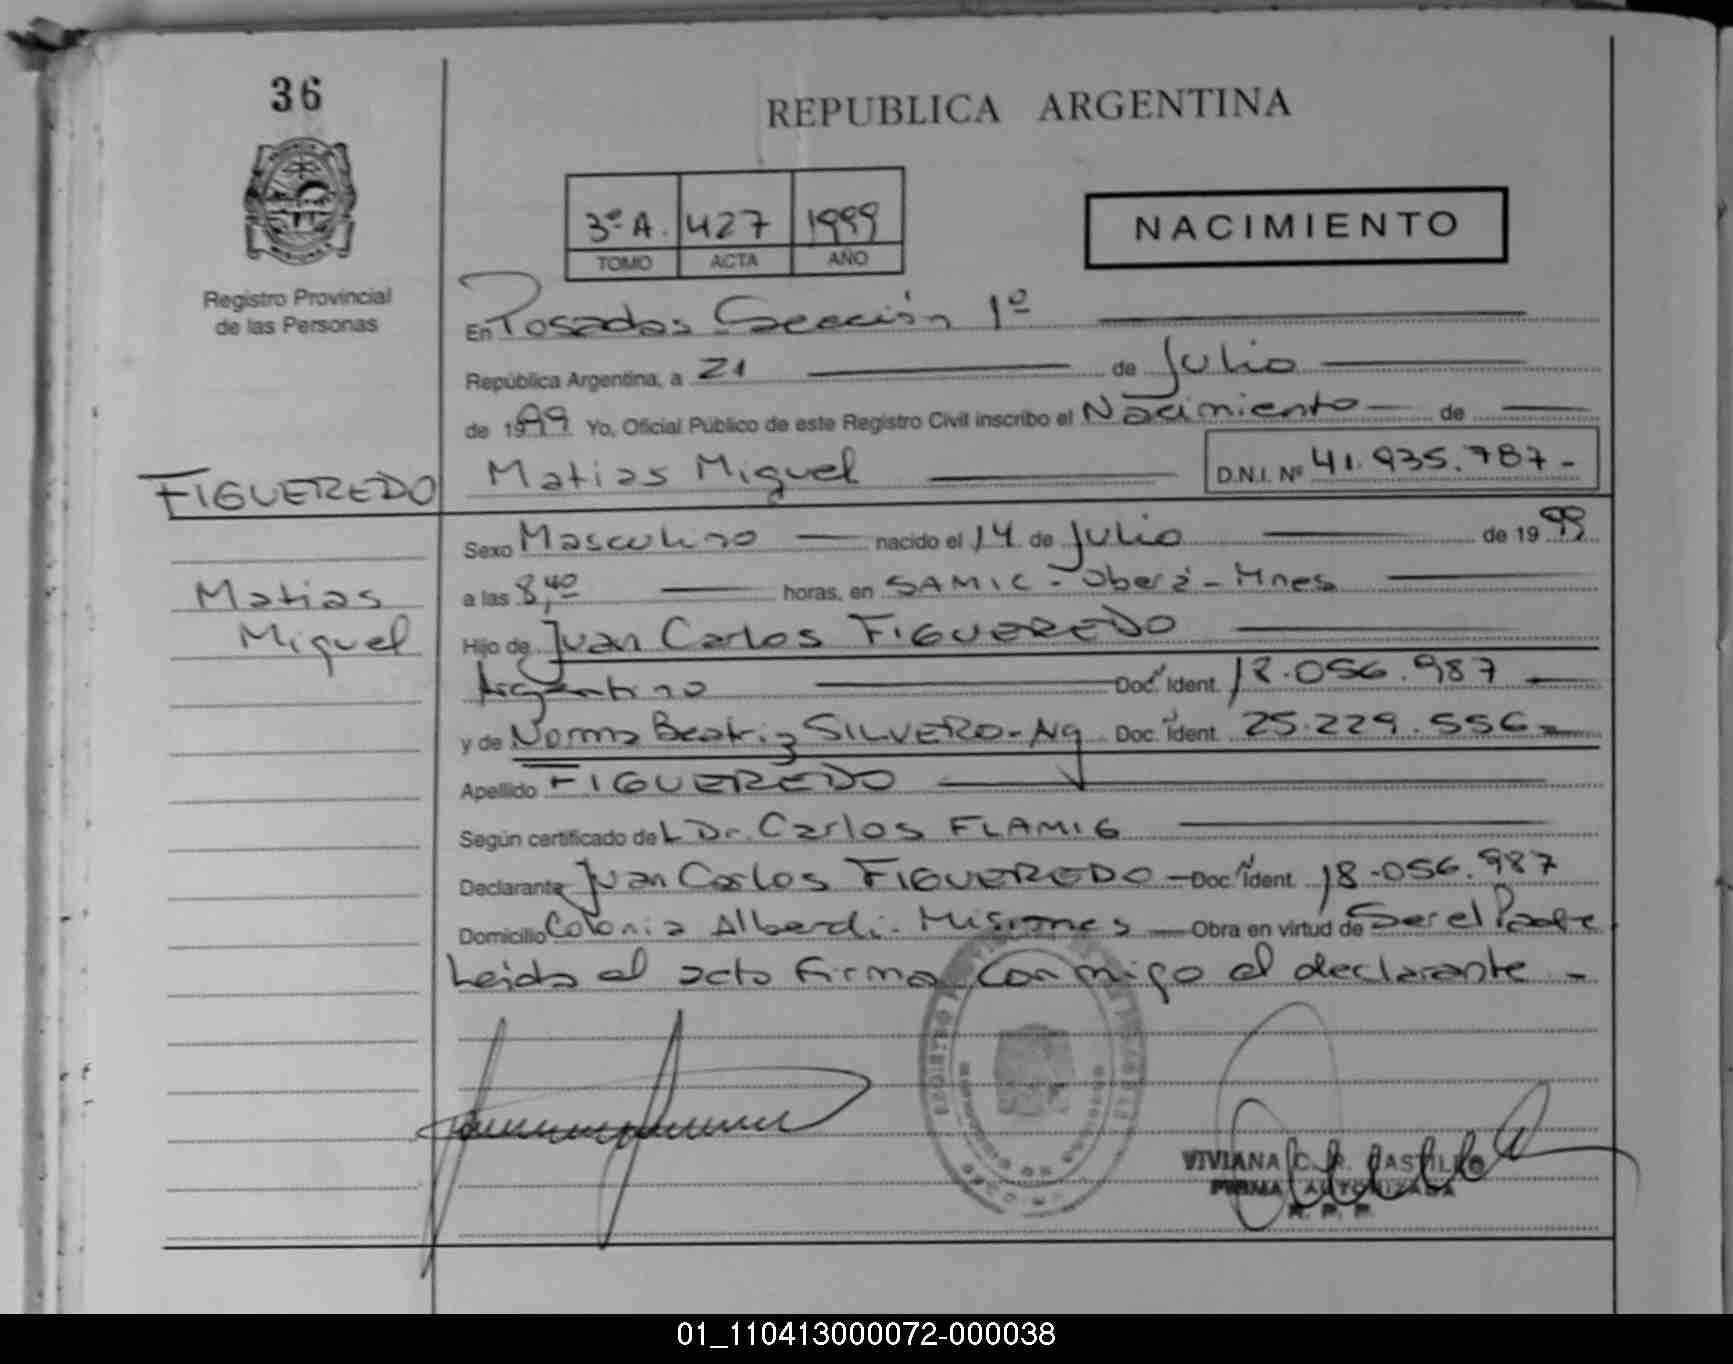 36
REPUBLICA ARGENTINA
3º A. 427 1999
TOMO ACTA AÑO
NACIMIENTO
Registro Provincial
de las Personas
En Posadas Sección 1º
República Argentina, a 21 de Julio
de 1999 Yo, Oficial Público de este Registro Civil inscribo el Nacimiento de
FIGUEREDO Matias Miguel D.N.I. Nº 41.935.787-
Sexo Masculino nacido el 14 de Julio de 1999
Matias
Miguel
a las 8,40 horas, en SAMIC - Oberá - Mnes
Hijo de Juan Carlos FIGUEREDO
Argentino Doc. Ident. 18.056.987
y de Norma Beatriz SILVERO - Ag Doc. Ident. 25.229.556
Apellido FIGUEREDO
Según certificado del Dr. Carlos FLAMIG
Declarante Juan Carlos FIGUEREDO Doc. Ident. 18.056.987
Domicilio Colonia Alberdi - Misiones Obra en virtud de Ser el Padre
Leida el acta firma conmigo el declarante -
VIVIANA C. R. CASTILLO
FIRMA AUTORIZADA
R. P. P.
01_110413000072-000038